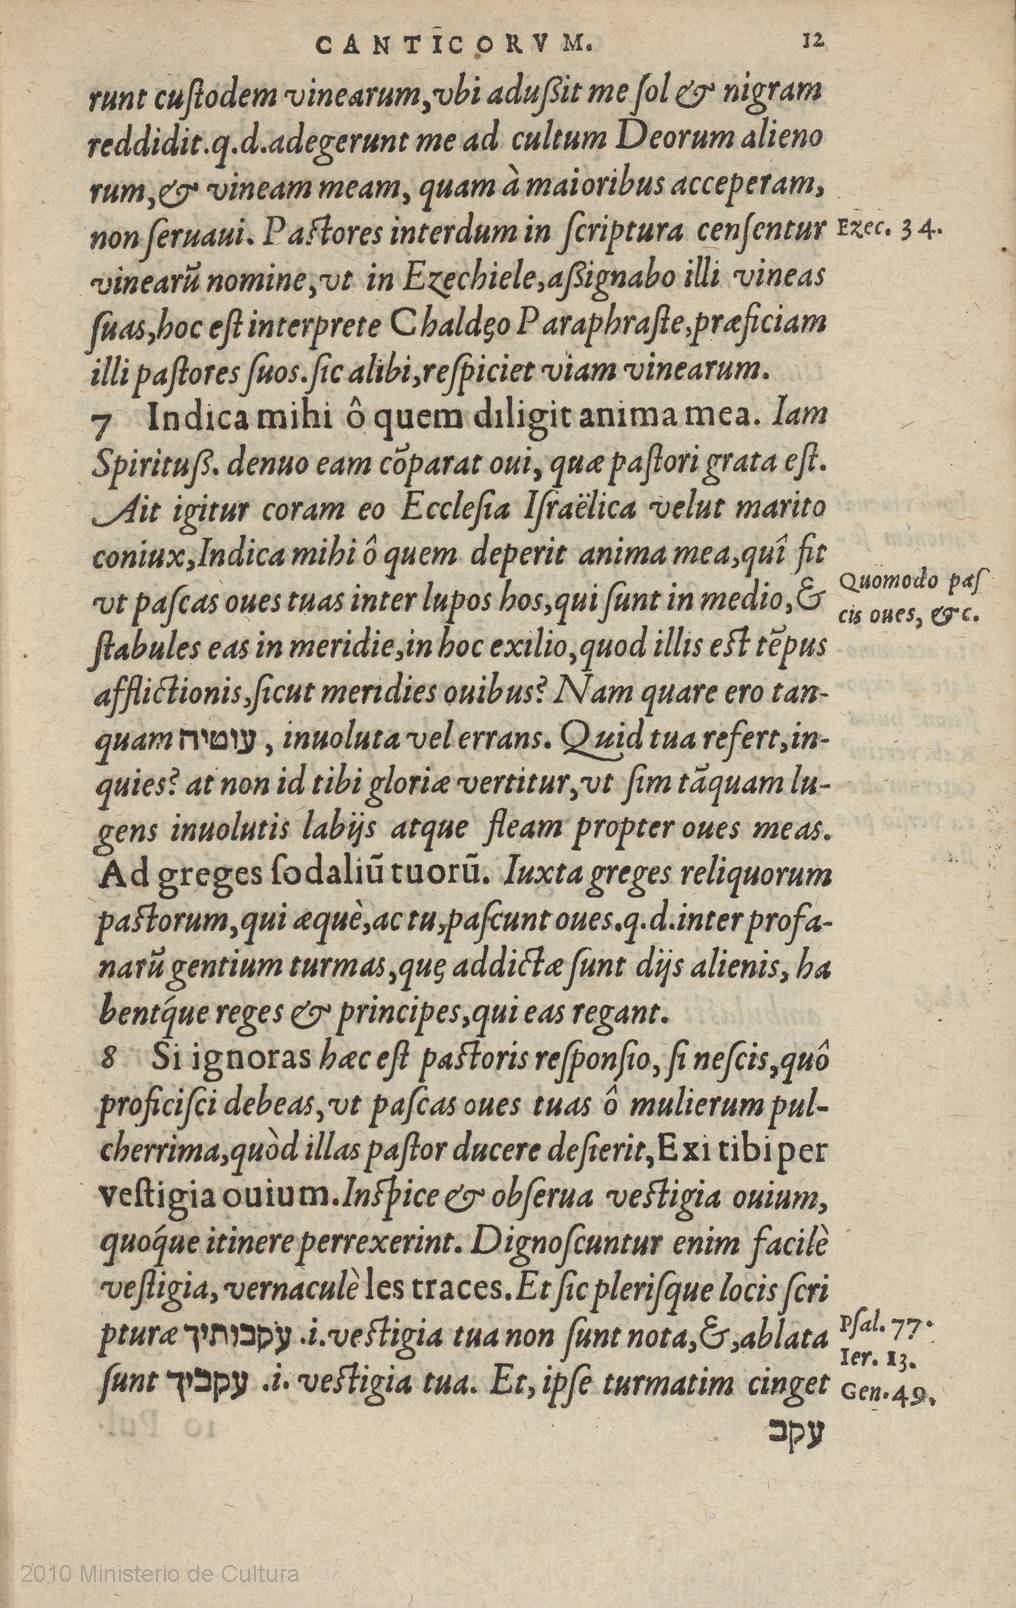 CANTICORVM. 12
runt custodem vinearum, vbi adussit me sol & nigram
reddidit. q.d. adegerunt me ad cultum Deorum alieno
rum, & vineam meam, quam à maioribus acceperam,
non seruaui. Pastores interdum in scriptura censentur
Ezec. 34.
vinearū nomine, vt in Ezechiele, assignabo illi vineas
suas, hoc est interprete Chaldęo Paraphraste, præficiam
illi pastores suos. sic alibi, respiciet viam vinearum.
7 Indica mihi ô quem diligit anima mea. Iam
Spirituss. denuo eam cōparat oui, quæ pastori grata est.
Ait igitur coram eo Ecclesia Israëlica velut marito
coniux, Indica mihi ô quem deperit anima mea, quî fit
vt pascas oues tuas inter lupos hos, qui sunt in medio, &
Quomodo pas
cis oues, &c.
stabules eas in meridie, in hoc exilio, quod illis est tēpus
afflictionis, sicut meridies ouibus? Nam quare ero tan-
quam עוטיה, inuoluta vel errans. Quid tua refert, in-
quies? at non id tibi gloriæ vertitur, vt sim tāquam lu-
gens inuolutis labijs atque fleam propter oues meas.
Ad greges sodaliū tuorū. Iuxta greges reliquorum
pastorum, qui æquè, ac tu, pascunt oues. q.d. inter profa-
narū gentium turmas, quę addictæ sunt dijs alienis, ha
bentq́ue reges & principes, qui eas regant.
8 Si ignoras hæc est pastoris responsio, si nescis, quô
proficisci debeas, vt pascas oues tuas ô mulierum pul-
cherrima, quòd illas pastor ducere desierit, Exi tibi per
vestigia ouium. Inspice & obserua vestigia ouium,
quoq́ue itinere perrexerint. Dignoscuntur enim facilè
vestigia, vernaculè les traces. Et sic plerisque locis scri
pturæ עקבותיך .i. vestigia tua non sunt nota, &, ablata
Psal. 77.
Ier. 13.
sunt עקביך .i. vestigia tua. Et, ipse turmatim cinget
Gen. 49.
עקב
2010 Ministerio de Cultura